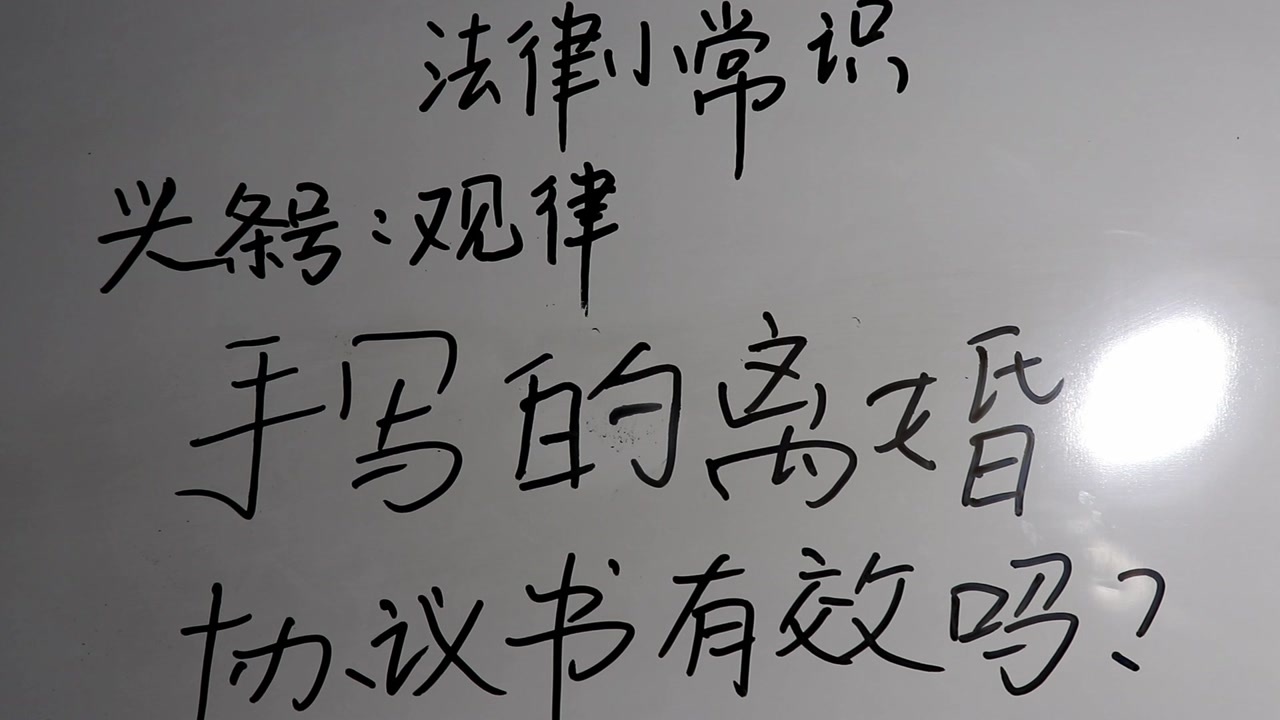 法律小常识
头条号:观律
手写的离婚
协议书有效吗?